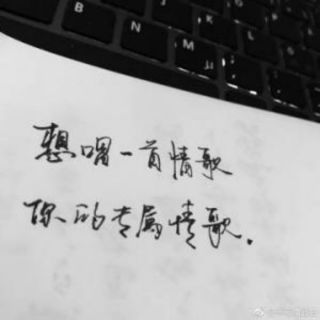 B N M
想唱一首情歌
你的专属情歌.